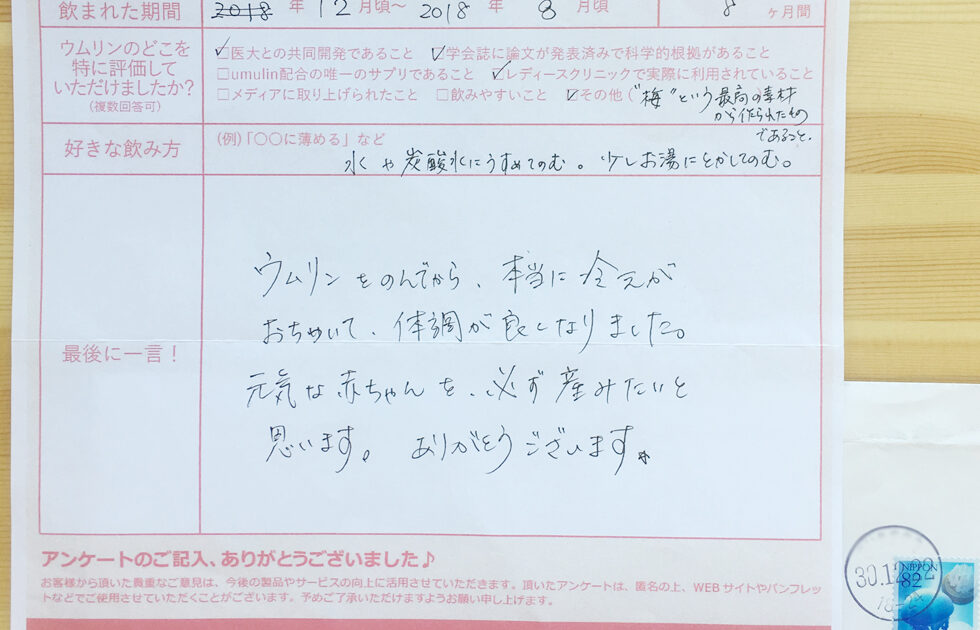 飲まれた期間 2018 年 12 月頃～ 2018 年 8 月頃 8 ヶ月間
ウムリンのどこを
特に評価して
いただけましたか?
(複数回答可)
☑医大との共同開発であること ☑学会誌に論文が発表済みで科学的根拠があること
□umulin配合の唯一のサプリであること ☑レディースクリニックで実際に利用されていること
□メディアに取り上げられたこと □飲みやすいこと ☑その他 ("梅"という最高の素材
から作られたもの
であること。
好きな飲み方
(例)「〇〇に薄める」など
水や炭酸水にうすめてのむ。少しお湯にとかしてのむ。
最後に一言！
ウムリンをのんでから、本当に冷えが
おちついて、体調が良くなりました。
元気な赤ちゃんを、必ず産みたいと
思います。ありがとうございます。
アンケートのご記入、ありがとうございました♪
お客様から頂いた貴重なご意見は、今後の製品やサービスの向上に活用させていただきます。頂いたアンケートは、匿名の上、WEBサイトやパンフレッ
トなどでご使用させていただくことがございます。予めご了承いただけますようお願い申し上げます。
30.12.22
NIPPON
82